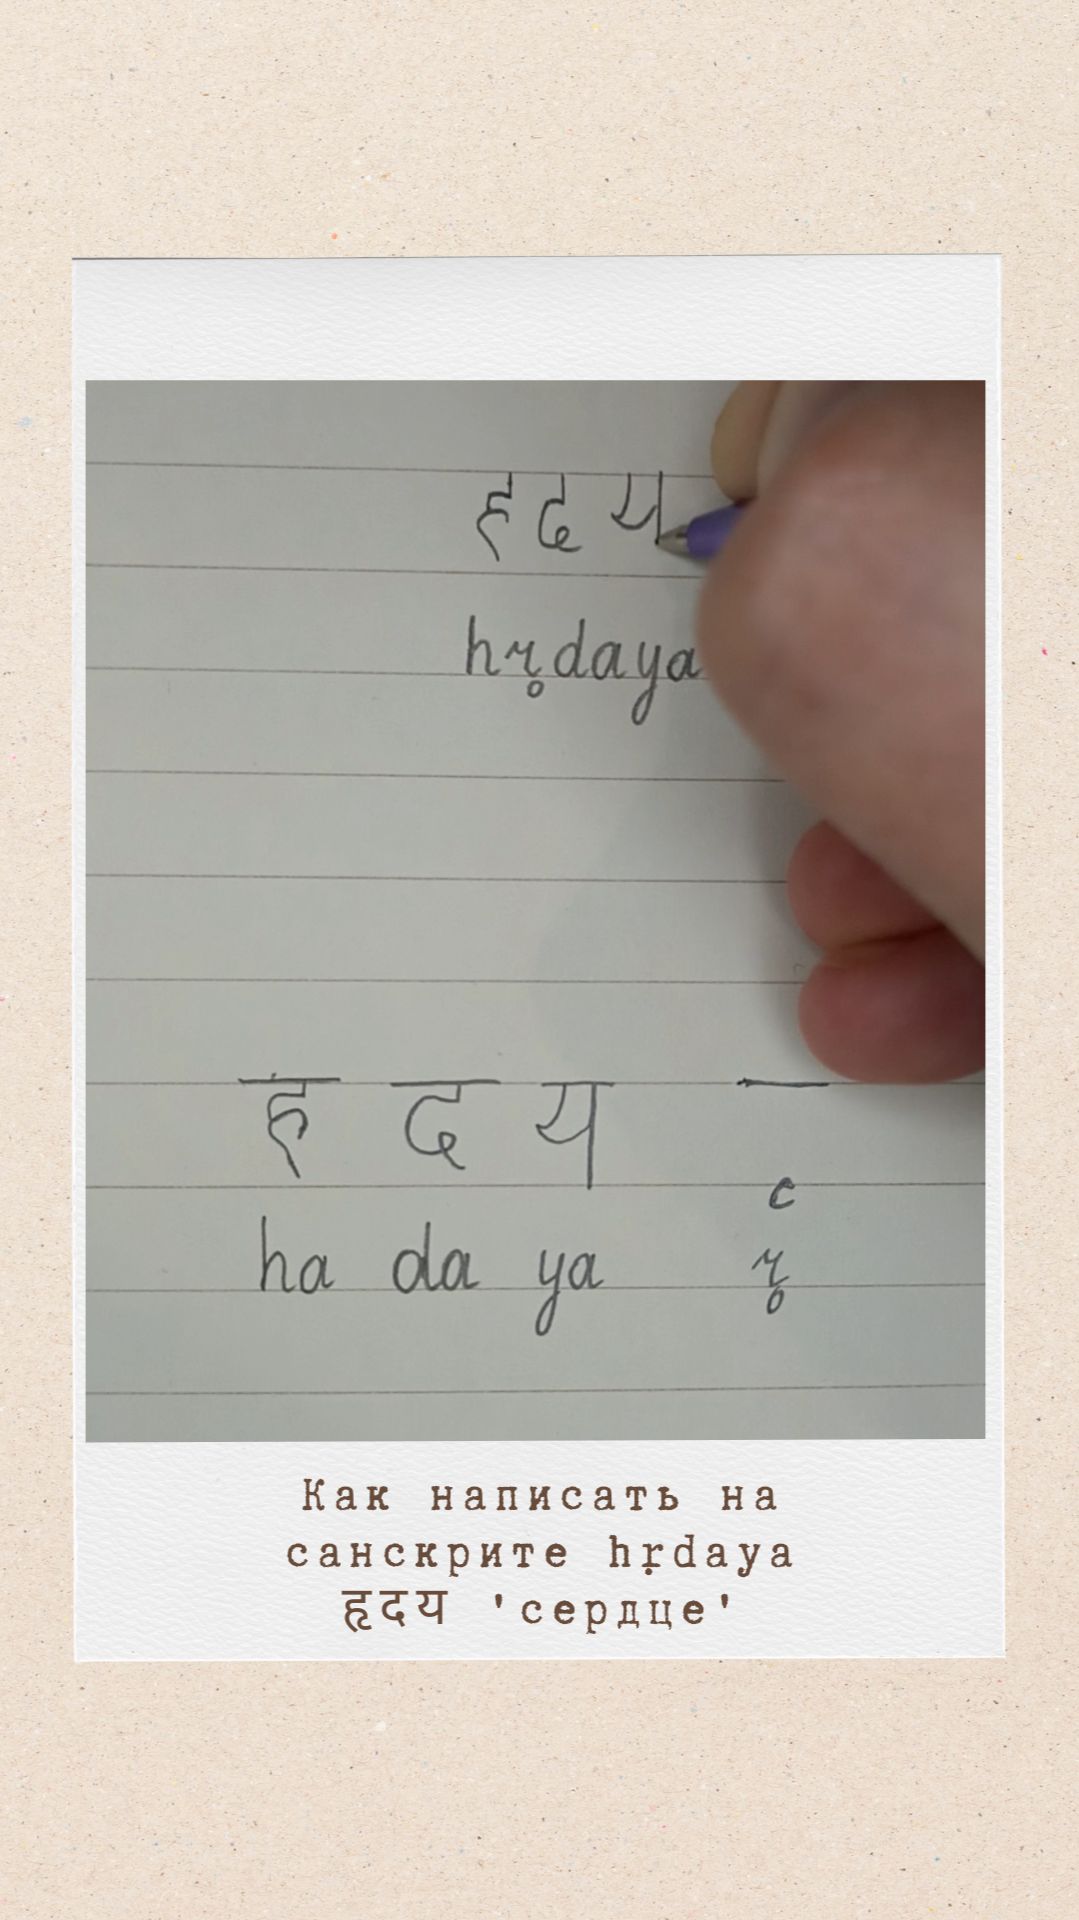 हदय
hr̥daya
ह द य
ha da ya r̥
Как написать на
санскрите hṛdaya
हृदय 'сердце'